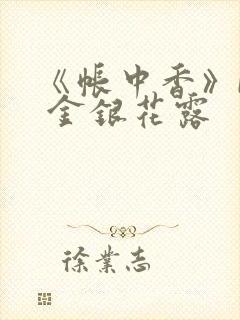 《帳中香》
金銀花露
徐業志